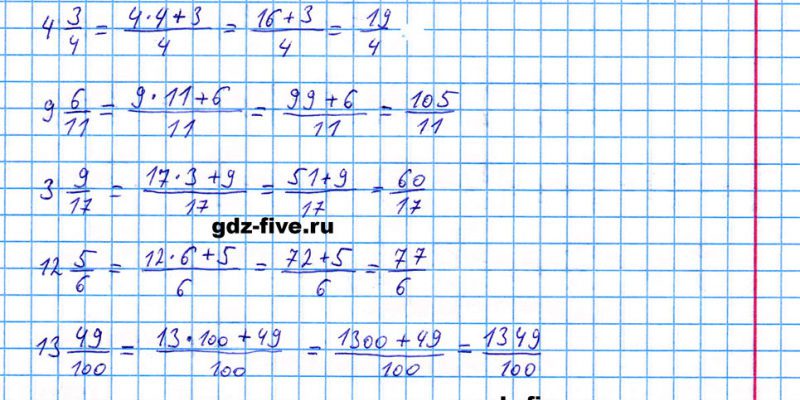 4 3/4 = (4·4+3)/4 = (16+3)/4 = 19/4
9 6/11 = (9·11+6)/11 = (99+6)/11 = 105/11
3 9/17 = (17·3+9)/17 = (51+9)/17 = 60/17
gdz-five.ru
12 5/6 = (12·6+5)/6 = (72+5)/6 = 77/6
13 49/100 = (13·100+49)/100 = (1300+49)/100 = 1349/100